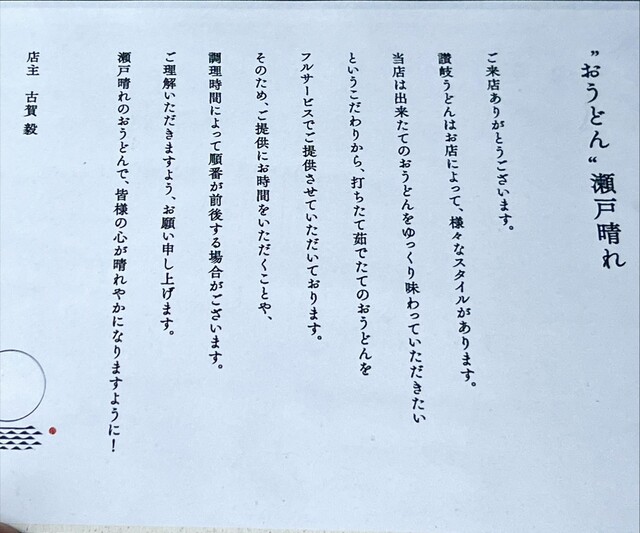 ”おうどん“瀬戸晴れ
ご来店ありがとうございます。
讃岐うどんはお店によって、様々なスタイルがあります。
当店は出来たてのおうどんをゆっくり味わっていただきたい
というこだわりから、打ちたて茹でたてのおうどんを
フルサービスでご提供させていただいております。
そのため、ご提供にお時間をいただくことや、
調理時間によって順番が前後する場合がございます。
ご理解いただきますよう、お願い申し上げます。
瀬戸晴れのおうどんで、皆様の心が晴れやかになりますように！
店主 古賀 毅